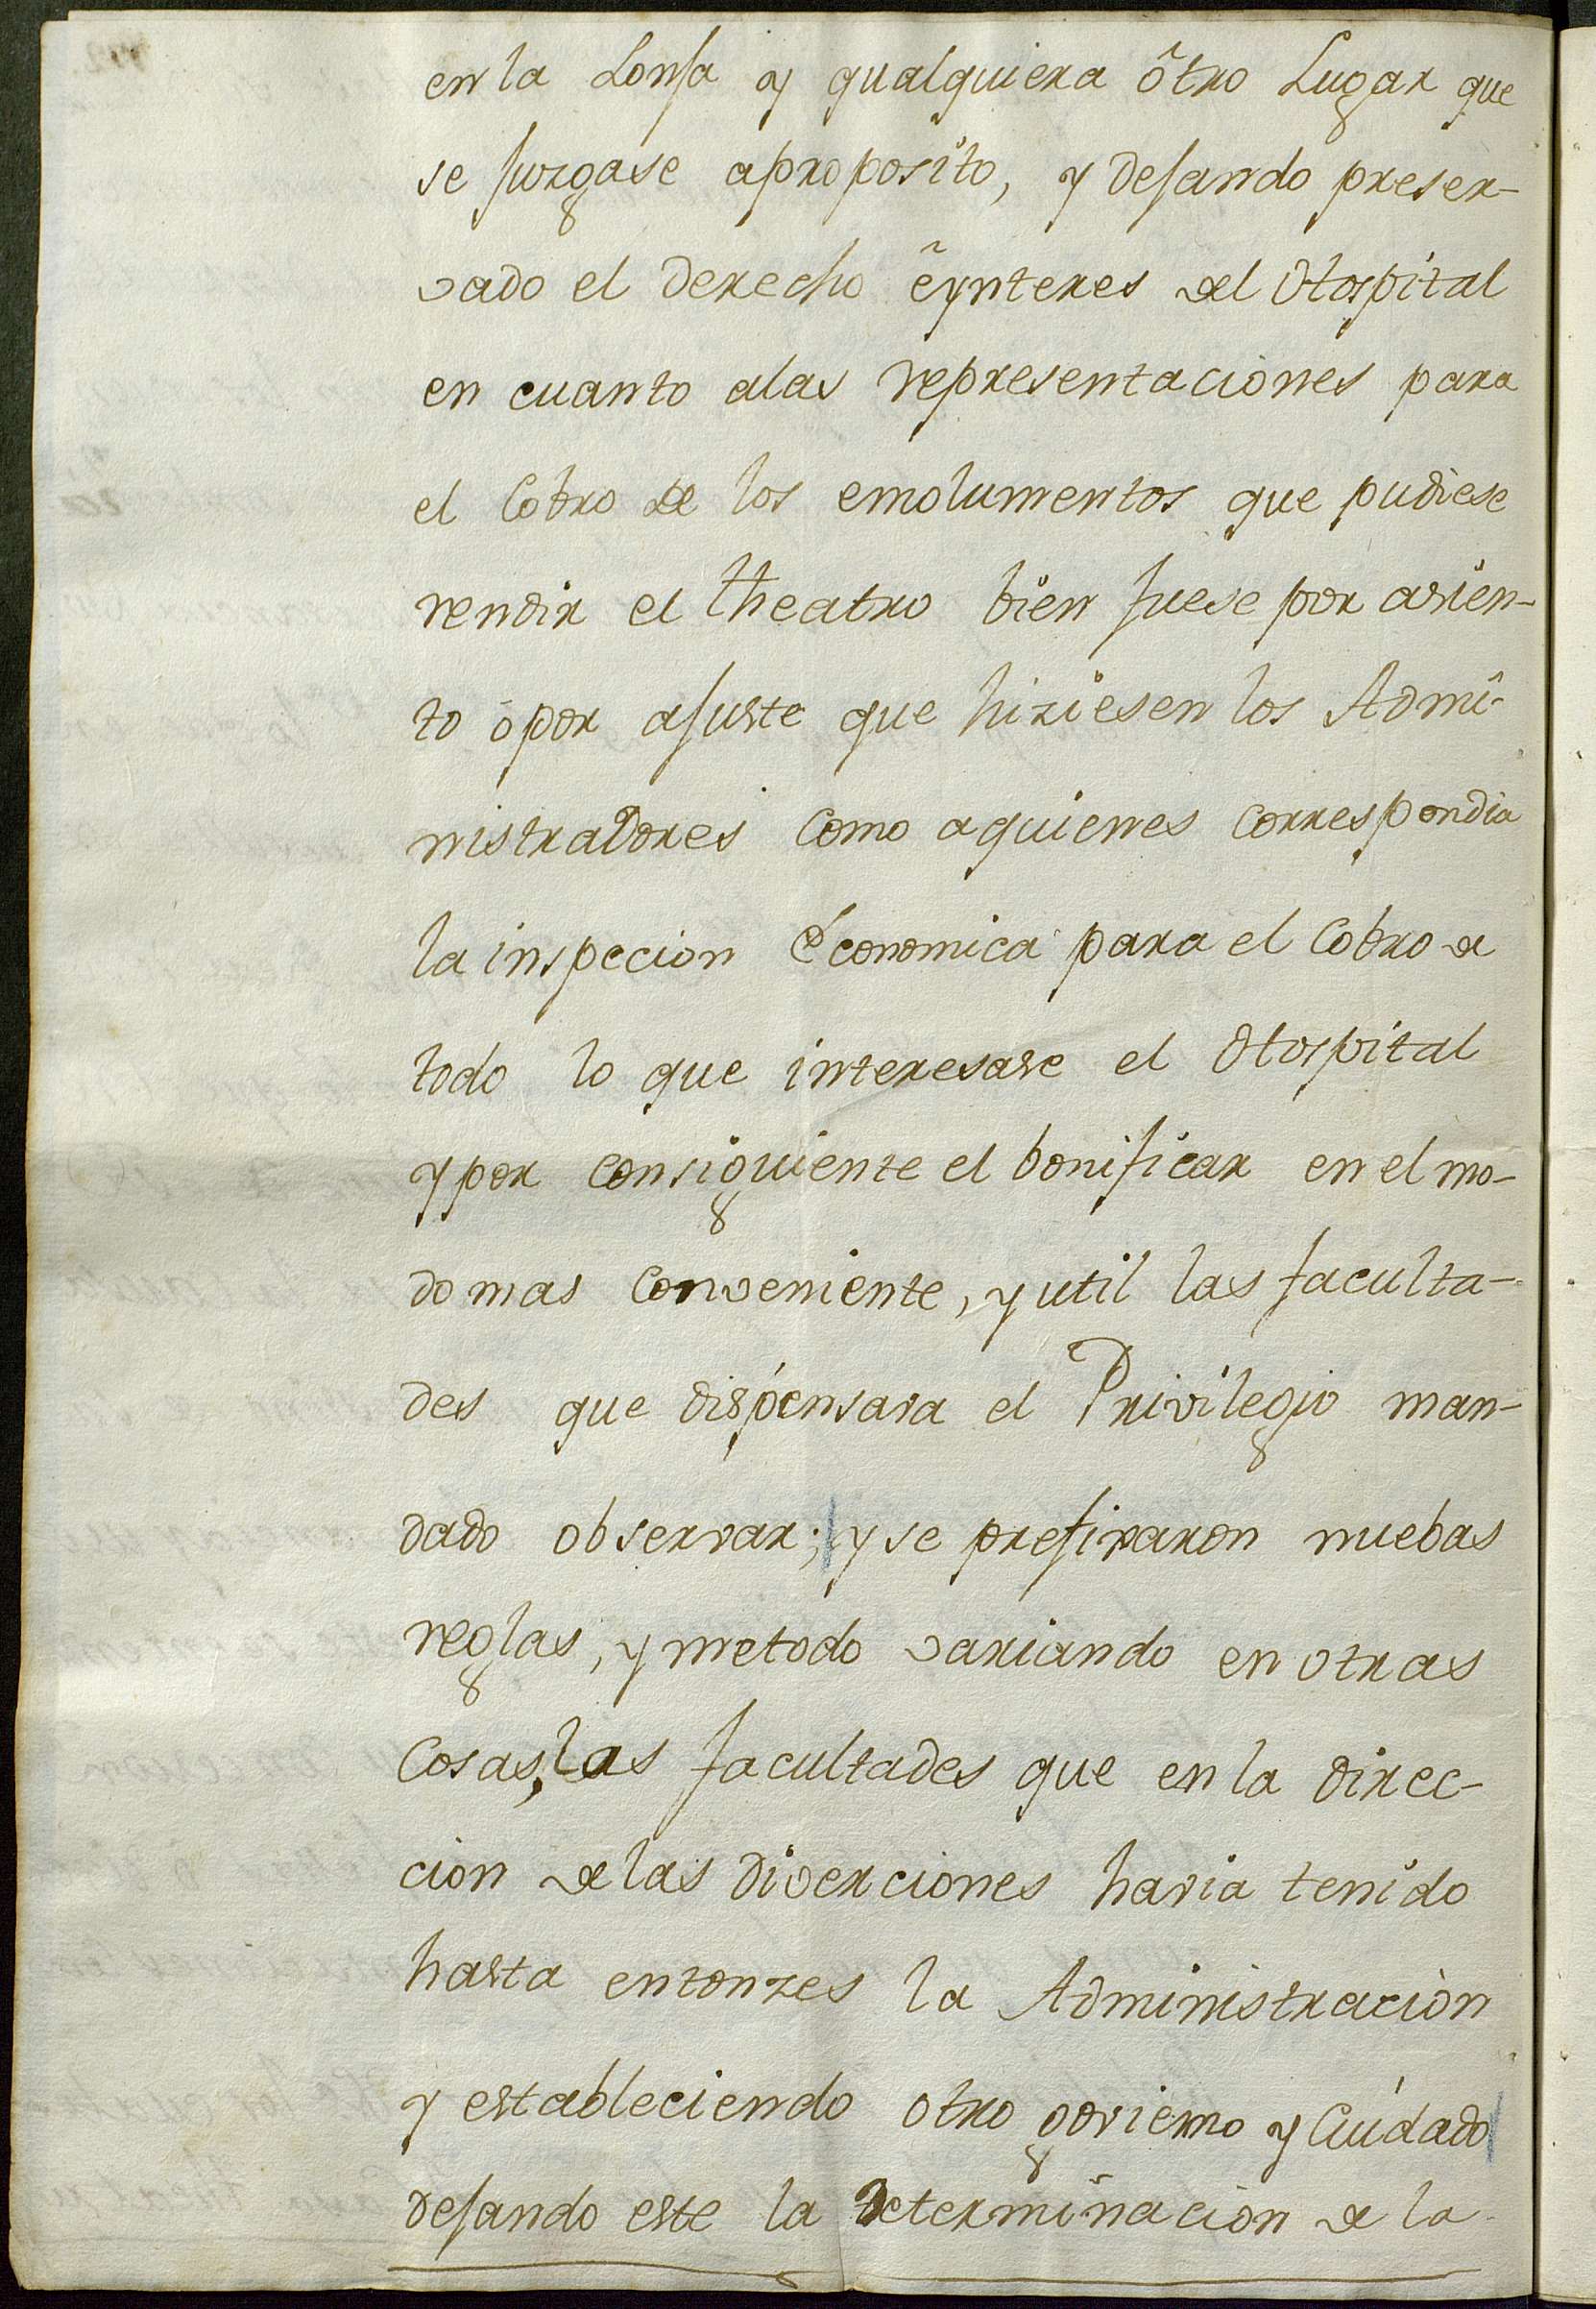 en la Lonja y qualquiera ôtro Lugar que
se juzgase aproposito, y dejando preser-
vado el derecho êynteres del Hospital
en cuanto alas representaciones para
el Cobro de los emolumentos que pudiese
rendir el theatro bien fuese por asien-
to ó por ajuste que hiziesen los Admi-
nistradores como aquienes correspondia
la inspecion économica para el Cobro de
todo lo que interesase el Hospital
y por consiguiente el bonificar en el mo-
do mas conveniente, y util las faculta-
des que dispensava el Privilegio man-
dado observar; y se prefixaron nuebas
reglas, y metodo variando en otras
Cosas, las facultades que en la direc-
cion de las diverciones havia tenido
hasta entonzes la Administracion
y estableciendo otro govierno y Cuidado
dejando este la determinacion de la